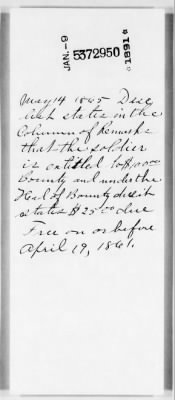 JAN.-9
5372950
*1891*
May 14 1865 Disc
ist states in the
Column of Remarks
that the soldier
is entitled to $100.00
Bounty and under the
Head of Bounty due it
states $25.00 due
Free on or before
April 19, 1861.